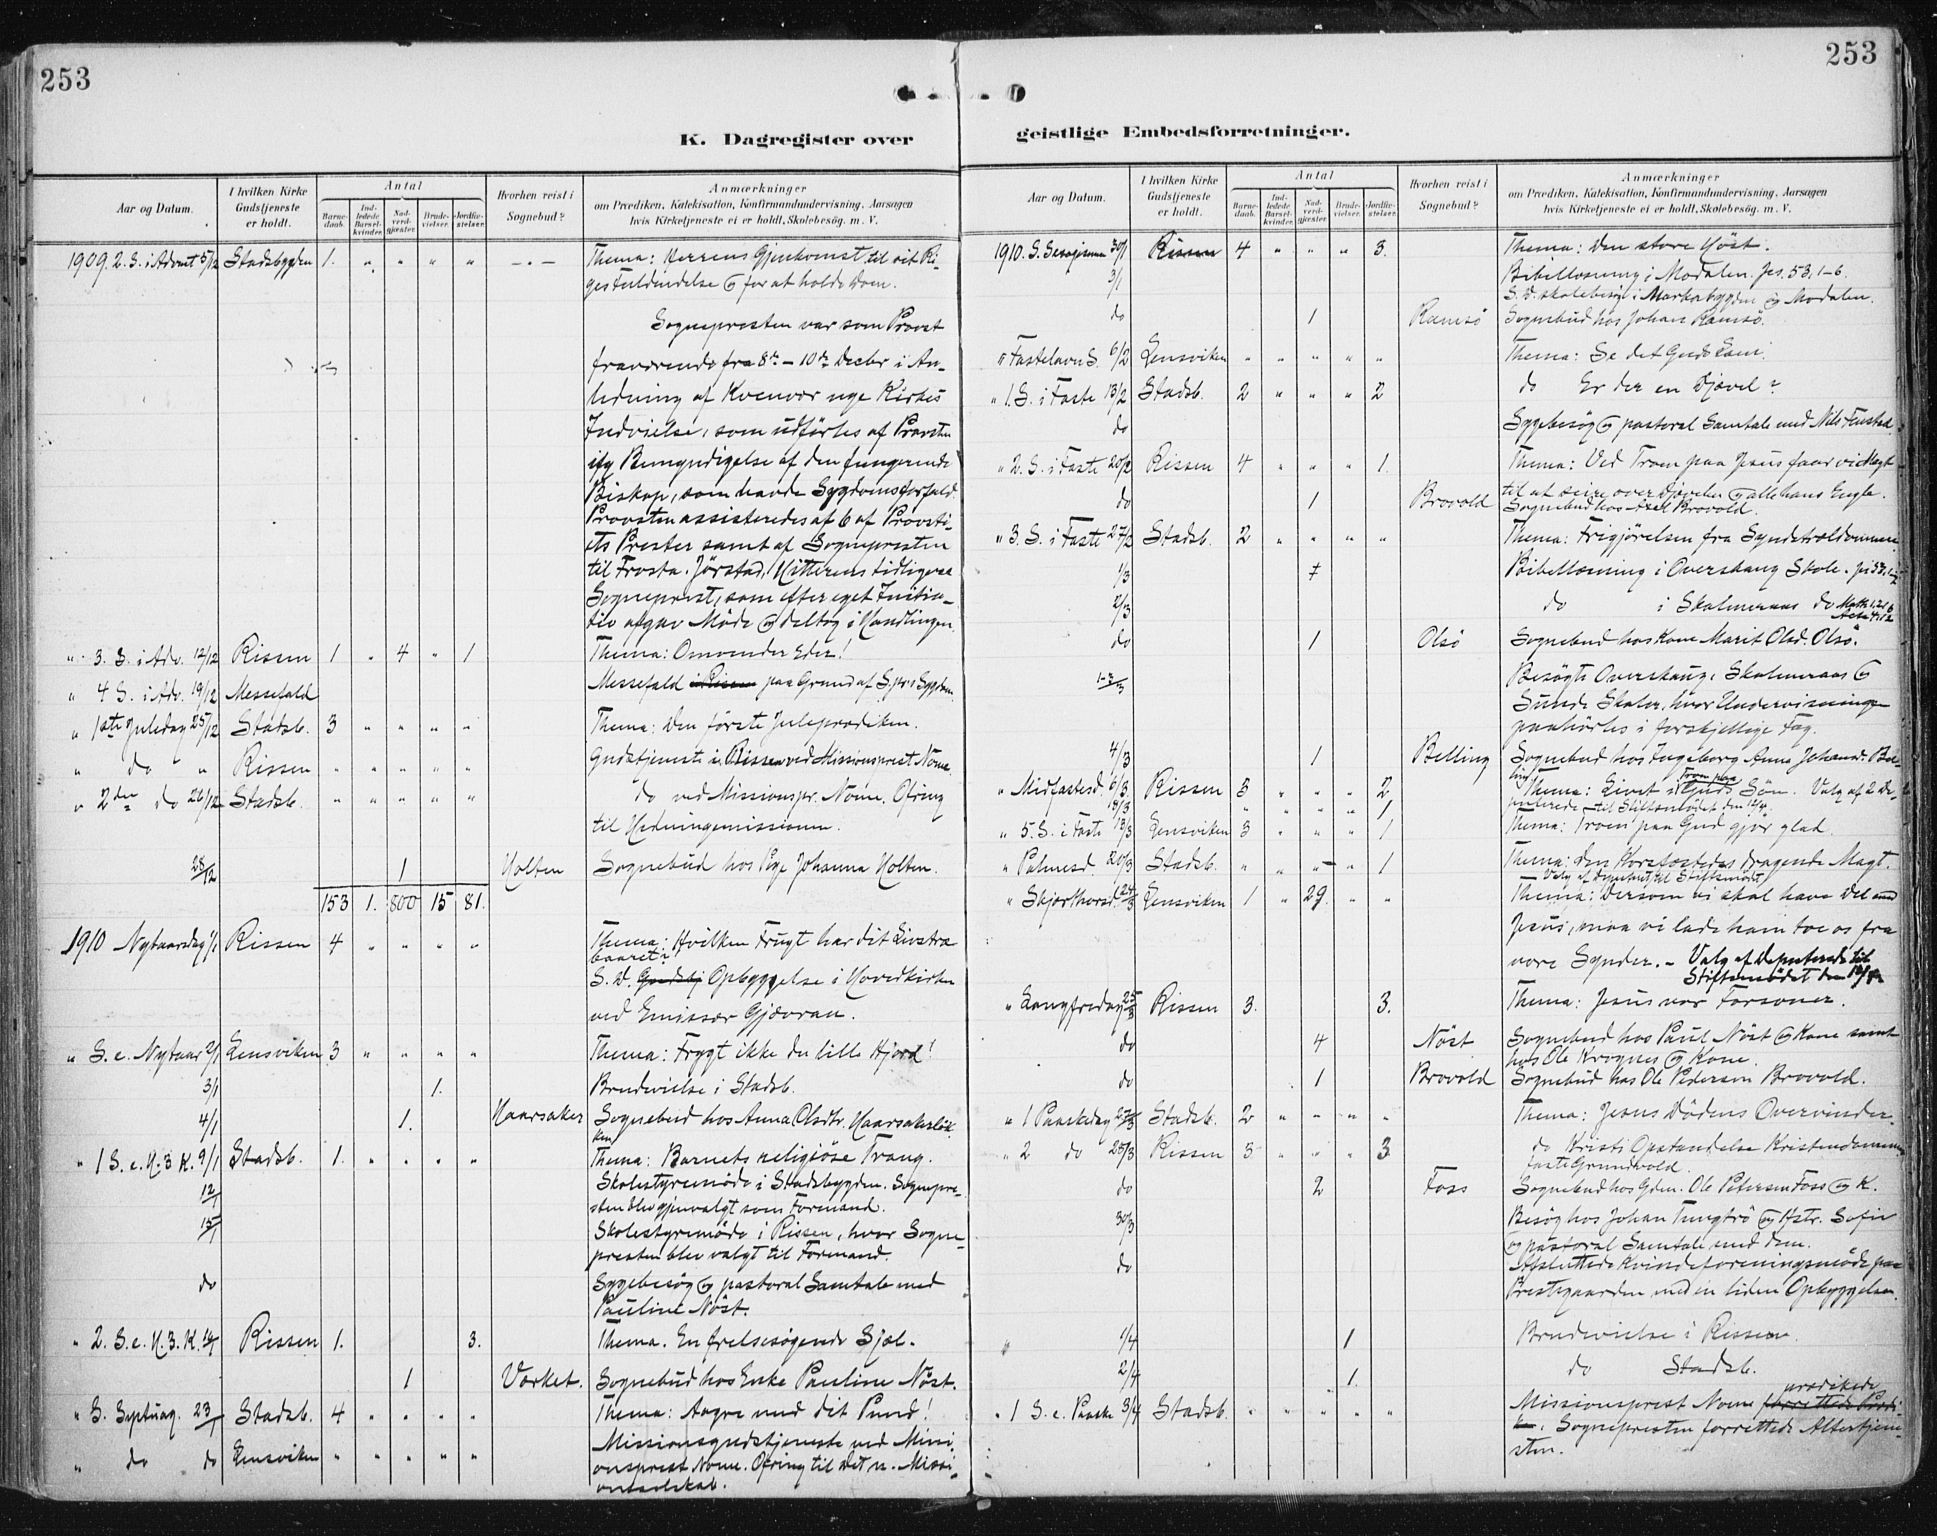 253
K. Dagregister over
Aar og Datum.
I hvilken Kirke Gudstjeneste er holdt.
Antal
Barnedaab.
Indledede Barselkvinder.
Nadverdgjæster.
Brudevielser.
Jordfæstelser.
Hvorhen reist i Sognebud?
Anmærkninger
om Prædiken, Katekisation, Konfirmandundervisning, Aarsagen
hvis Kirketjeneste ei er holdt, Skolebesøg. m. V.
1909. 2. S. i Advent 5/12 Stadsbygden 1. " " " " -"- Thema: Herrens Gjenkomst til sit Ri-
gesfuldendelse og for at holde Dom.
Sognepresten var som Provst
fraværende fra 8de - 10de Decbr i An-
ledning af Kvenvær nye Kirkes
Indvielse, som udførtes af Provsten
ifg Bemyndigelse af den fungerende
Biskop, som havde Sygdomsforfald.
Provsten assisteredes af 6 af Provsti-
ets Prester samt af Sognepresten
til Frosta. Jörstad, Hitterens tidligere
Sogneprest, som efter eget Initia-
tiv afgav Møde og deltog i Handlingen.
" 3. S. i Adv. 12/12 Rissen 1 " 4 " 1 Thema: Omvender Eder!
" 4 S. i Adv. 19/12 Messefald Messefald i Rissen paa Grund af S.pr.s Sygdom
" 1ste Juledag 25/12 Stadsb. 3 " " " " Thema: Den förste Juleprædiken.
" do " Rissen " " " " " Gudstjeneste i Rissen ved Missionsprest Nome
" 2den do 26/12 Stadsb. " " " " " do ved Missionspr. Nome. Ofring
til Hedningemissionen.
28/12 1 Holten Sognebud hos Pige Johanna Holten.
153 1. 800 15 81.
1910 Nytaarsdag 1/1 Rissen 4 " " " " Thema: Hvilken Frugt har dit Livstræ
baaret?
S. D. Gudstj Opbyggelse i Hovedkirken
ved Emissær Gjævran.
" S. e. Nytaar 2/1 Lensviken 3 " " " " Thema: Frygt ikke du lille Hjord!
3/1 1. Brudevielse i Stadsb.
4/1 1. Haarsaker Sognebud hos Anna Olsdtr. Haarsakerløk-
ken
" 1 S. e. H. 3 K. 9/1 Stadsb. 1. " " " " Thema: Barnets religiöse Trang.
12/1 Skolestyremöde i Stadsbygden. Sognepre-
sten blev gjenvalgt som Formand.
15/1 Skolestyremöde i Rissen, hvor Sogne-
presten blev valgt til Formand.
do Sygebesög og pastoral Samtale med
Pauline Nöst.
" 2. S. e. H. 3. K. Rissen 1. 3. Thema. En frelsesøgende Sjæl.
1 Værket. Sognebud hos Enke Pauline Nöst.
" S. Septuag. 23/1 Stadsb. 4 " " " " Thema: Aagre med dit Pund!
" do do Lensviken " " " " " Missionsgudstjeneste ved Missi-
onsprest Nome. Ofring til Det n. Missi-
onsselskab.
253
geistlige Embedsforretninger.
Aar og Datum.
I hvilken Kirke Gudstjeneste er holdt.
Antal
Barnedaab.
Indledede Barselkvinder.
Nadverdgjæster.
Brudevielser.
Jordfæstelser.
Hvorhen reist i Sognebud?
Anmærkninger
om Prædiken, Katekisation, Konfirmandundervisning, Aarsagen
hvis Kirketjeneste ei er holdt, Skolebesøg. m. V.
1910. S. Sexagesima 30/1 Rissen 4 " " " 3. Thema: Den store Höst.
3/1 Bibellæsning i Modalen. Jes. 53. 1-6.
S. D. skolebesög i Markabygden og Modalen.
do 1 Ramsö Sognebud hos Johan Ramsö.
" Fastelavns S. 6/2 Lensviken " " " " " Thema: Se det Guds Lam.
" 1. S. i Faste 13/2 Stadsb. 2 " " " 2 do Er der en Djævel?
do Sygebesög og pastoral Samtale med Nils Fenstad.
" 2. S. i Faste 20/2 Rissen 4 " " " 1. Thema: Ved Troen paa Jesus faar vi Magt
til at seire over Djævelen og alle hans Engle.
do 1 Brovold Sognebud hos Brovold.
" 3. S. i Faste 27/2 Stadsb. 2 " " " " Thema: Frigjørelsen fra Syndetrældommen.
1/3 Bibellæsning i Overskaug Skole. Jes 53.
2/3 do i Skolmeraas do Matth. 1.21 &
Acta 4.12
do 1 Olsö Sognebud hos Kone Marit Olsd. Olsö.
1-3/3 Besögte Overskaug, Skolmeraas og
Sunde Skoler, hvor Undervisningen
paahörtes i forskjellige Fag.
4/3 1 Belling Sognebud hos Ingeborg Anna Johansd. Bel-
ling
" Midfastesd. 6/3 Rissen 5 " " " 2 Thema: Livet i Troen paa Guds Sön. Valg af 2 De-
puterede til Stiftsmödet den 12/4.
" " " " 1
" 5. S. i Faste 13/3 Lensviken 3 " " " 1 Thema: Troen paa Gud gjör glad.
" Palmesd. 20/3 Stadsb. " " " " 1 Thema: Den Korsfæstedes dragende Magt.
Valg af Deputeret til Stiftsmödet
" Skjærthorsd. 24/3 Lensviken 1 " 29. " " Thema: Dersom vi skal have Del med
Jesus, maa vi lade ham toe os fra
vore Synder. - Valg af Deputerede til
Stiftsmödet den 12/4
" Langfredag 25/3 Rissen 3. 3. Thema: Jesus vor Forsoner.
do 4 Nöst Sognebud hos Paul Nöst og Kone samt
hos Ole Krognes og Kone.
do 1 Brovold Sognebud hos Ole Pedersen Brovold.
" 1 Paaskedag 27/3 Stadsb. 2 " " " " Thema: Jesus Dödens Overvinder.
" 2 do 28/3 Rissen 5 " " " 3 do Kristi Opstandelse Kristendommens
faste Grundvold.
do 2 Foss Sognebud hos Gdm. Ole Petersen Foss og K.
30/3 Besög hos Johan Tungtrö og Hstr. Sofie
og pastoral Samtale med dem.
do Afsluttede Kvindeforeningsmöde paa
Prestegaarden med en liden Opbyggelse.
" 1/4 1 Brudevielse i Rissen.
2/4 1. do Stadsb.
" 1 S. e. Paaske 3/4 Stadsb. " " " " " Missionsprest Nome prædikede forrettede Prædi-
ken. Sognepresten forrettede Altertjene-
sten.